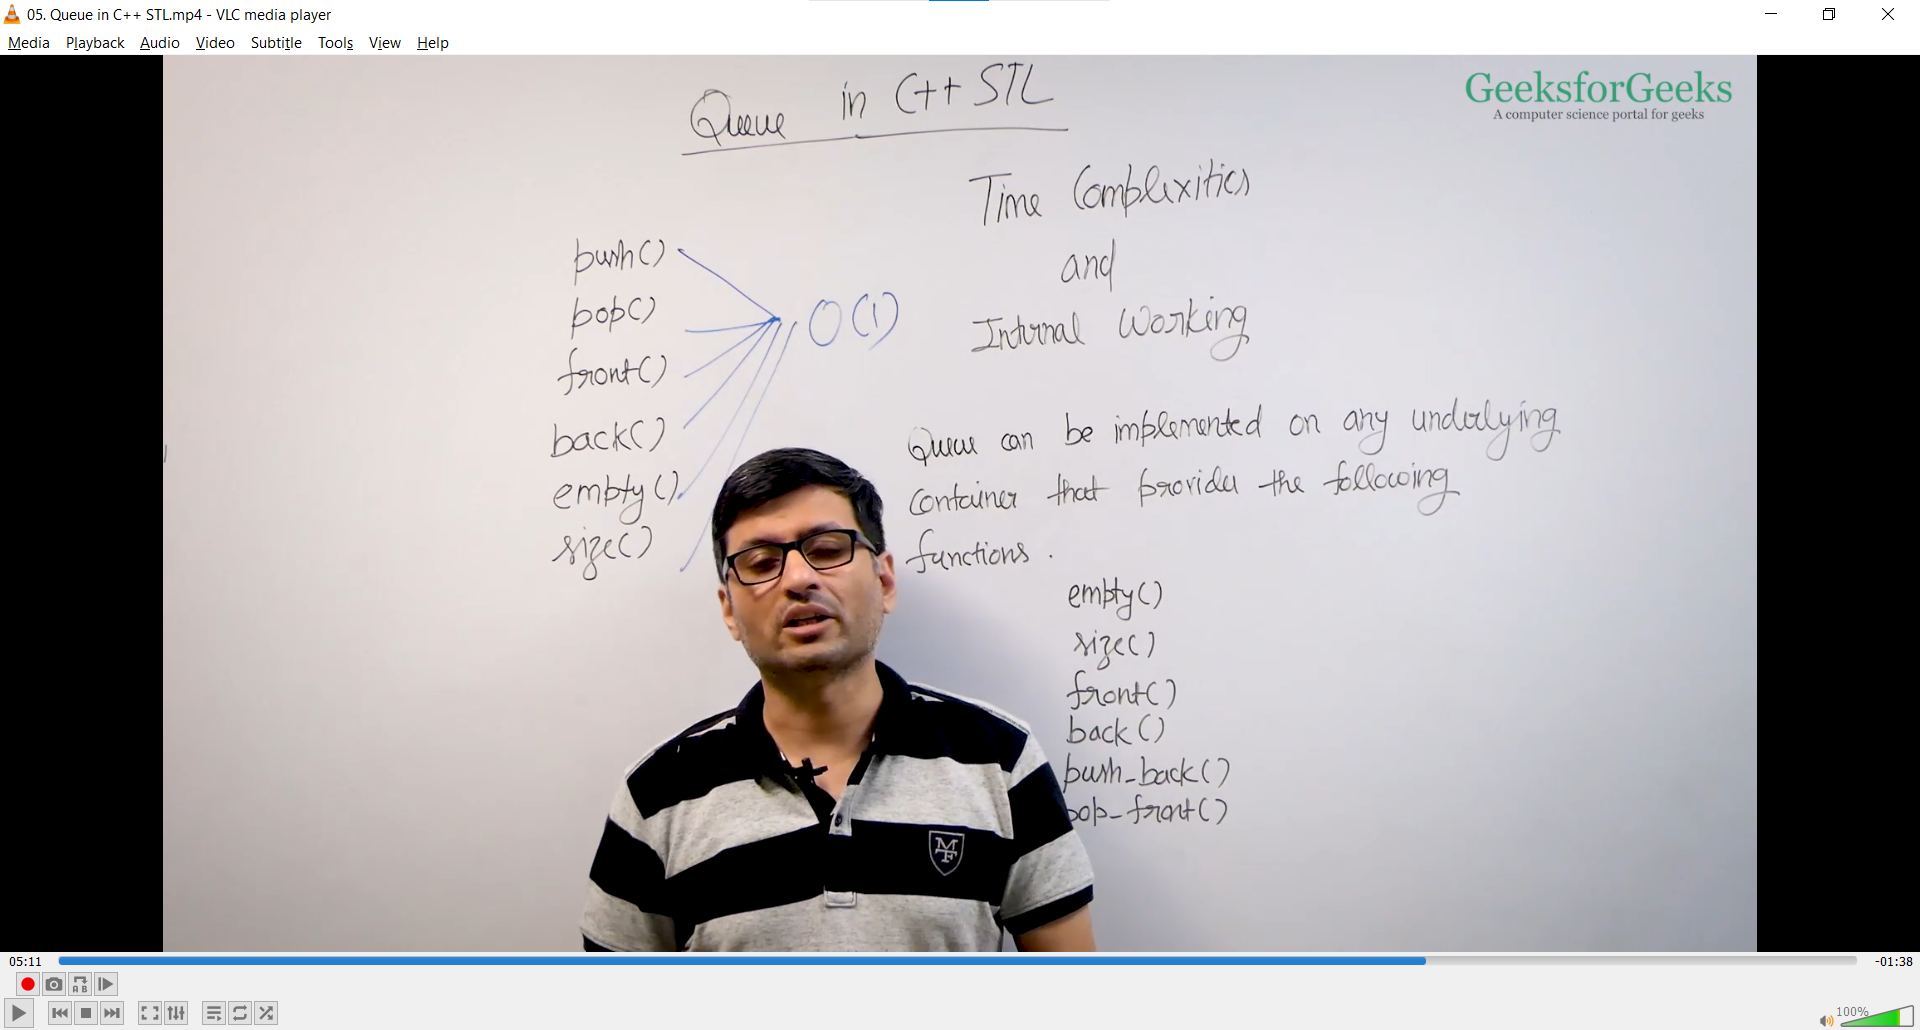 05. Queue in C++ STL.mp4 - VLC media player
Media Playback Audio Video Subtitle Tools View Help
Queue in C++ STL
GeeksforGeeks
A computer science portal for geeks
Time Complexities
and
Internal Working
push()
pop()
front()
back()
empty()
size()
O(1)
Queue can be implemented on any underlying
container that provides the following
functions.
empty()
size()
front()
back()
push_back()
pop_front()
MF
05:11
-01:38
A B
100%